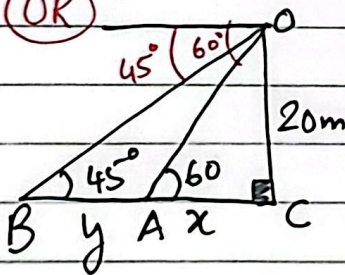 OR
O
45° 60°
20m
45° 60
B y A x C